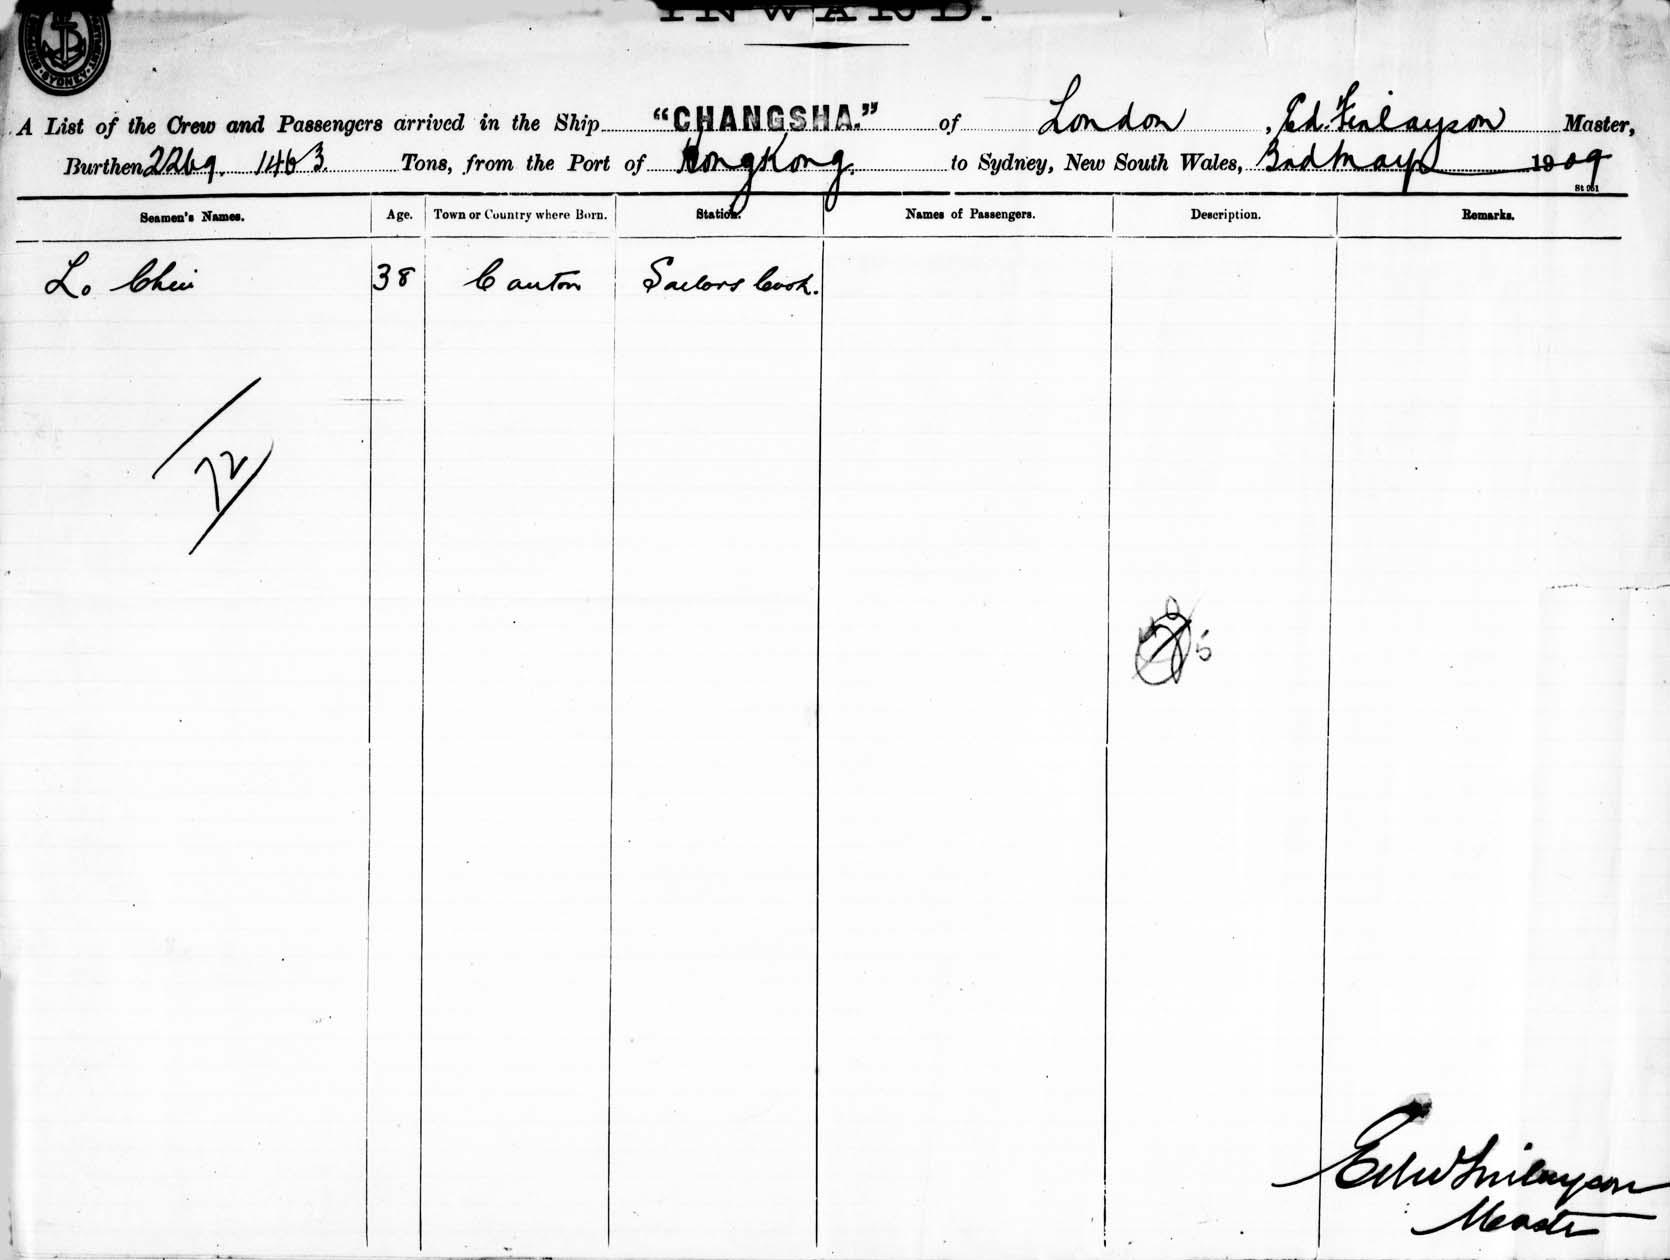 INWARD.
SYDNEY
A List of the Crew and Passengers arrived in the Ship "CHANGSHA." of London, Ed. Finlayson Master,
Burthen 2269. 1463. Tons, from the Port of Hong Kong. to Sydney, New South Wales, 3rd May 1909
St 951
Seamen's Names. Age. Town or Country where Born. Station. Names of Passengers. Description. Remarks.
Lo Chui 38 Canton Sailors Cook.
72
5
Edw Finlayson
Master